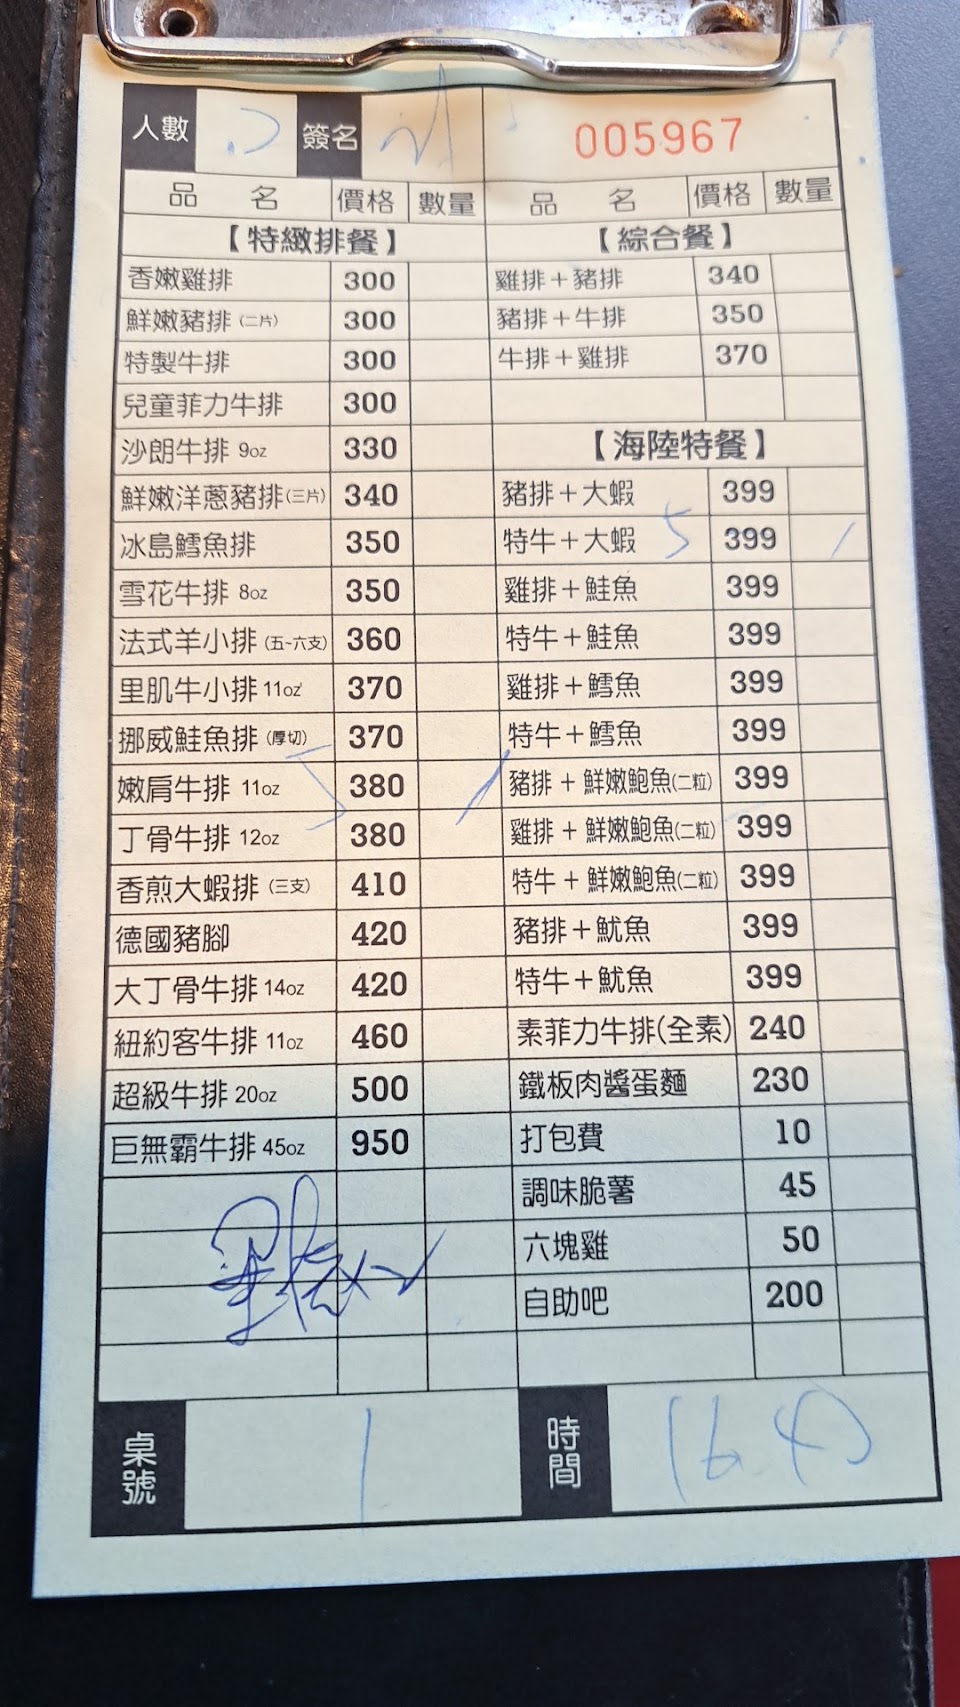 人數 2 簽名 005967
品名 價格 數量 品名 價格 數量
【特緻排餐】
香嫩雞排 300
鮮嫩豬排(二片) 300
特製牛排 300
兒童菲力牛排 300
沙朗牛排 9oz 330
鮮嫩洋蔥豬排(三片) 340
冰島鱈魚排 350
雪花牛排 8oz 350
法式羊小排(五~六支) 360
里肌牛小排 11oz 370
挪威鮭魚排(厚切) 370
嫩肩牛排 11oz 5 380 1
丁骨牛排 12oz 380
香煎大蝦排(三支) 410
德國豬腳 420
大丁骨牛排 14oz 420
紐約客牛排 11oz 460
超級牛排 20oz 500
巨無霸牛排 45oz 950
【綜合餐】
雞排+豬排 340
豬排+牛排 350
牛排+雞排 370
【海陸特餐】
豬排+大蝦 399
特牛+大蝦 5 399 1
雞排+鮭魚 399
特牛+鮭魚 399
雞排+鱈魚 399
特牛+鱈魚 399
豬排+鮮嫩鮑魚(二粒) 399
雞排+鮮嫩鮑魚(二粒) 399
特牛+鮮嫩鮑魚(二粒) 399
豬排+魷魚 399
特牛+魷魚 399
素菲力牛排(全素) 240
鐵板肉醬蛋麵 230
打包費 10
調味脆薯 45
六塊雞 50
自助吧 200
桌號 1 時間 16.40